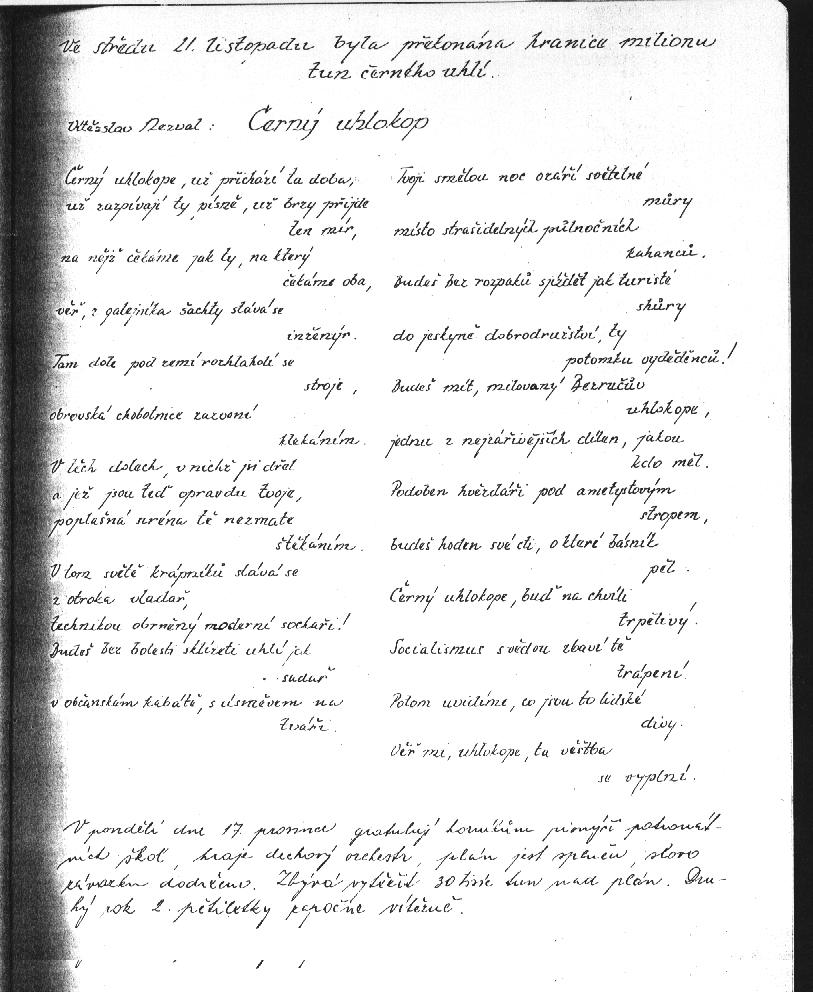 Ve středu 21. listopadu byla překonána hranice milionu
tun černého uhlí.
Vítězslav Nezval: Černý uhlokop
Černý uhlokope, už přichází ta doba,
už zazpívají ty písně, už brzy přijde
ten mír,
na nějž čekáme jak ty, na který
čekáme oba,
věř, z galejníka šachty stává se
inženýr.
Tam dole pod zemí rozhlaholí se
stroje,
obrovská chobotnice zazvoní
klekáním.
V těch dolech, v nichž jsi dřel
a jež jsou teď opravdu tvoje,
poplašná siréna tě nezmate
štěkáním.
V tom světě krápníků stává se
z otroka vladař,
technikou obrněný moderní sochaři!
Budeš bez bolesti sklízeti uhlí jak
sadař
v občanském kabátě, s úsměvem na
tváři.
Tvoji smělou noc ozáří světelné
můry
místo strašidelných půlnočních
kahanců.
Budeš bez rozpaků sjíždět jak turisté
shůry
do jeskyně dobrodružství, ty
potomku vyděděnců!
Budeš mít, milovaný Bezručův
uhlokope,
jednu z nejzářivějších dílen, jakou
kdo měl.
Podoben hvězdáři pod ametystovým
stropem,
budeš hoden své cti, o které básník
pěl.
Černý uhlokope, buď na chvíli
trpělivý.
Socialismus s vědou zbaví tě
trápení.
Potom uvidíme, co jsou to lidské
divy.
Věř mi, uhlokope, ta věštba
se vyplní.
V pondělí dne 17. prosince gratulují horníkům pionýři patronát-
ních škol, hraje dechový orchestr, plán jest splněn, slovo
závazku dodrženo. Zbývá vytěžit 30 tisíc tun nad plán. Dru-
hý rok 2. pětiletky započne vítězně.